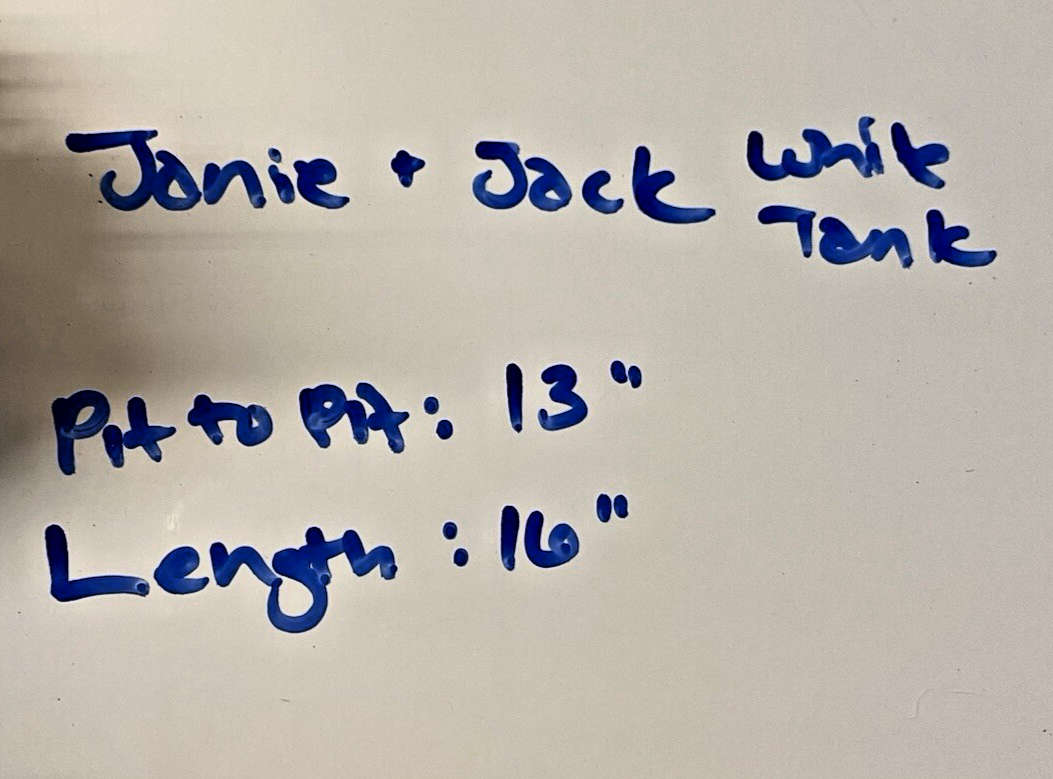 Janie + Jack White Tank
Pit to Pit: 13"
Length : 16"